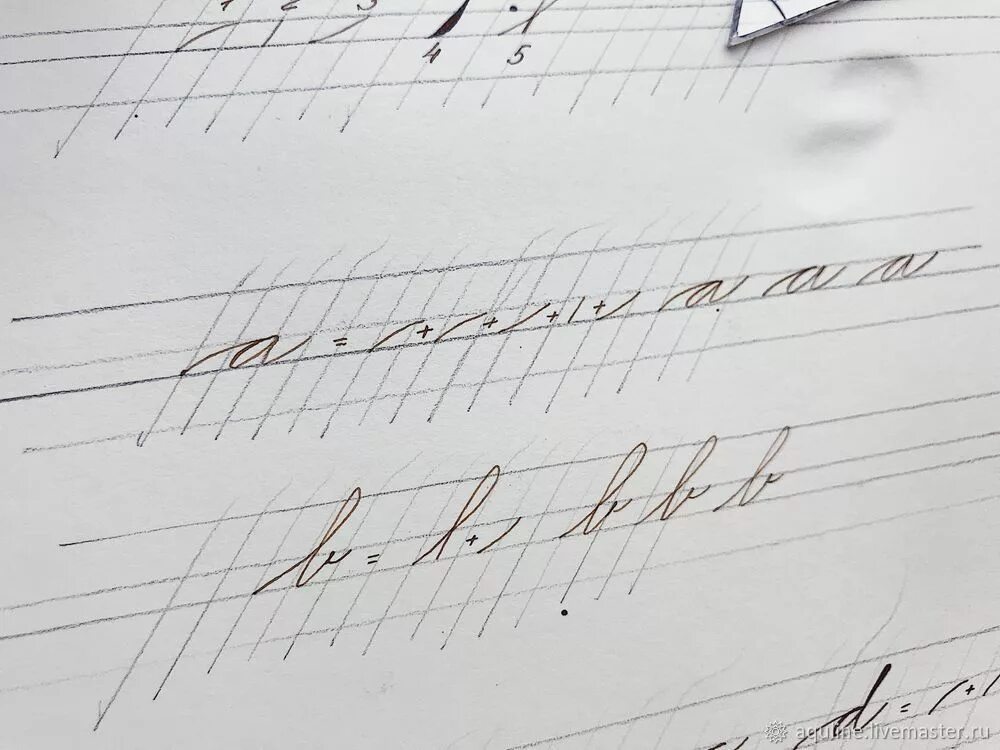 1 2 3
4 5
a = + + + + a a a
b = + b b b
d = +
aquline.livemaster.ru